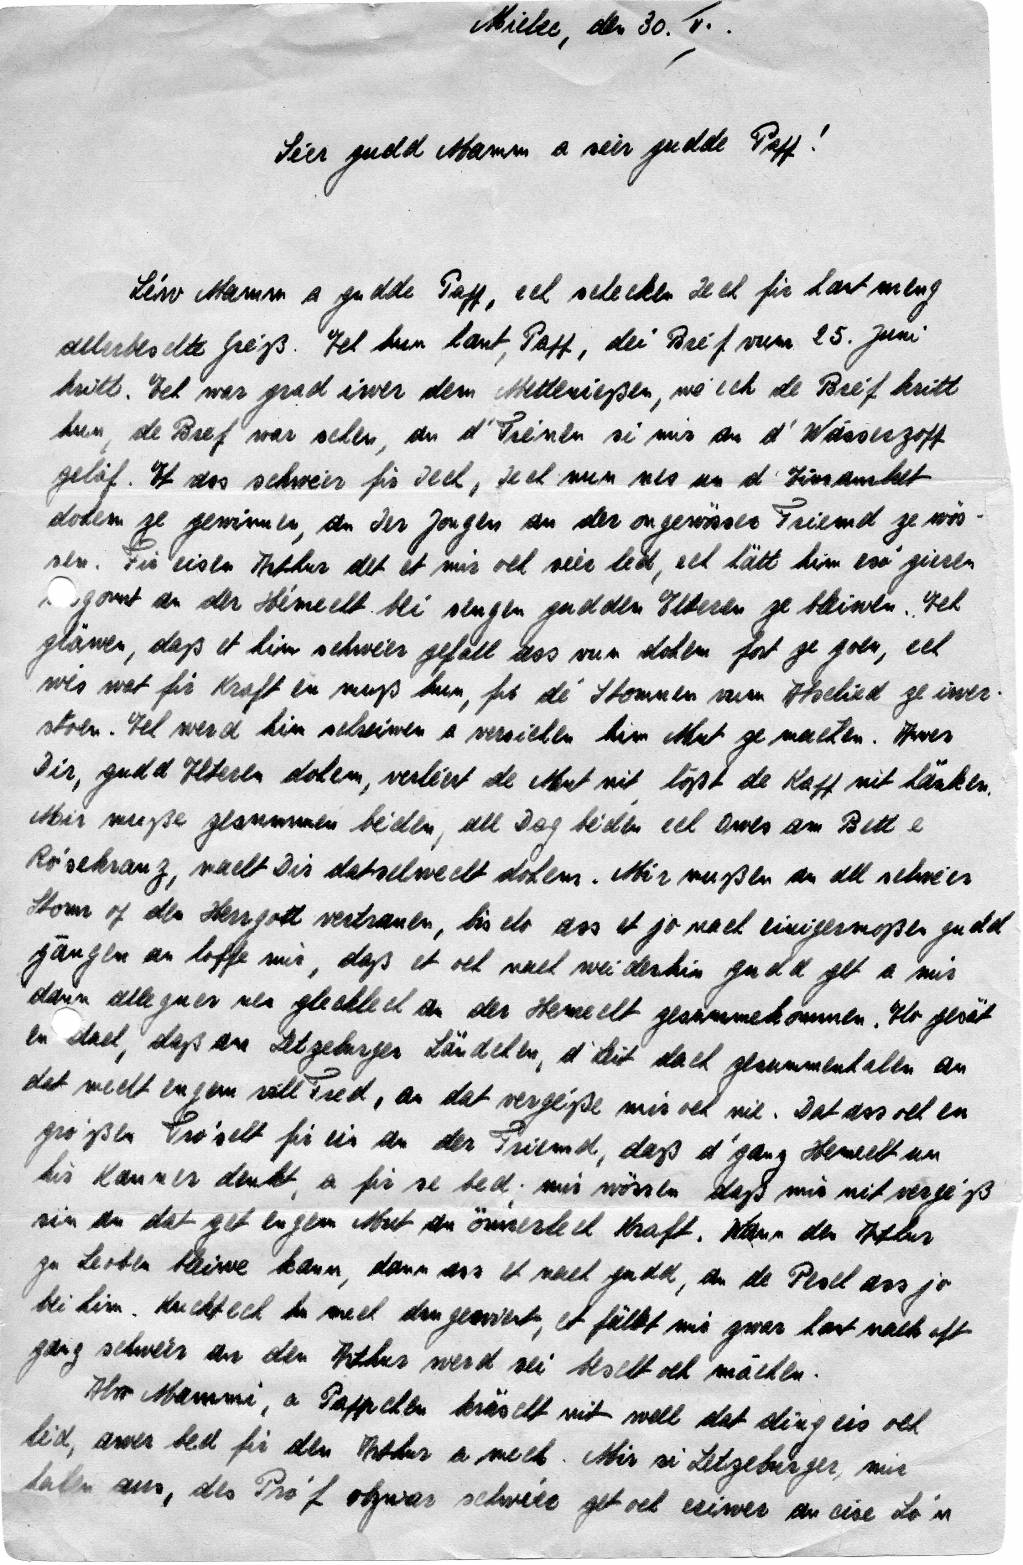 Mielec, den 30. V.
Séer gudd Mamm a séier gudde Paff!
Léiw Mamm a gudde Paff, ech schecken Iech fir haut meng
allerbeschte Gréiß. Ech hun haut, Paff, déi Bréf vum 25. Juni
kritt. Ech war grad iwer dem Mettenießen, wó ech de Bréf kritt
hun, de Bref war schen, an d' Treinen si mir an d' Wässerzoff
gelaf. Et ass schwéier fir Iech, Iech nun nes un d'
dohem ze gewinnen, an Der Jongen an der ongewösser Friemd ze wös-
sen. Fir eisen Arthur det et mir och séier led, ech lätt him esó gieren
gonnt an der Hémecht bei sengen gudden Elteren ze bleiwen. Ech
gläwen, daß et him schwéier gefall ass vun dohem fort ze goen, ech
wés wat fir Kraft en muß hun, fir dé Stonnen vum Abschied ze iwer-
stoen. Ech werd him schreiwen a versichen him Mut ze machen. Awer
Dir, gudd Elteren dohem, verléiert de Mut nit, loßt de Kapp nit hänken.
Mir muße zesummen bieden, all Dag bieden ech Owes am Bett e
Rósekranz, macht Dir datselwecht dohem. Mir mußen an all schwéier
Stonn op den Herrgott vertrauen, bis elo ass et jo nach einigermoßen gudd
gangen an hoffe mir, daß et och nach weiderhin gudd get a mir
dann alleguer nes glecklech an der Hemecht zesummekommen. Hei gesät
en dach, daß am Letzeburger Ländchen, d' Leit dach zesummenhalen an
dat mecht engem vill Fred, an dat vergeiße mir och nie. Dat ass och en
großen Tróscht fir eis an der Friemd, daß d' ganz Hemecht un
his Kanner denkt, a fir se bed. mir wössen daß mir nit vergeß
sin an dat get engem Mut an önnerlech Kraft. Wann den Arthur
zu Leoben bleiwe kann, dann ass et nach gudd, an de Pesch ass jo
bei him. Kuckt ech hu mech drugewiert, et fällt mir zwar haut nach oft
ganz schwéier an den Arthur werd sei bescht och mächen.
Also Mammi, a Pappchen kräscht nit well dat ding eis och
léd, awer bed fir den Arthur a mech. Mir si Letzeburger, mir
halen aus, des Próf obzwar schwéier get och eriwer an eise Ló'n